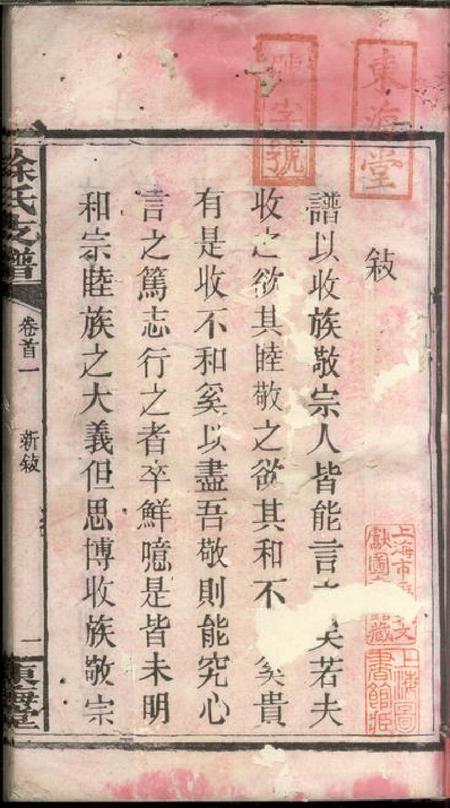 東海堂
號
敍
譜以收族敬宗人皆能言 矣若夫
收之欲其睦敬之欲其和不 矣貴
有是收不和奚以盡吾敬則能究心
言之篤志行之者卒鮮噫是皆未明
和宗睦族之大義但思博收族敬宗
徐氏支譜
卷首一
新敍
一
東海堂
上海市
獻圖 藏
上海圖
書館